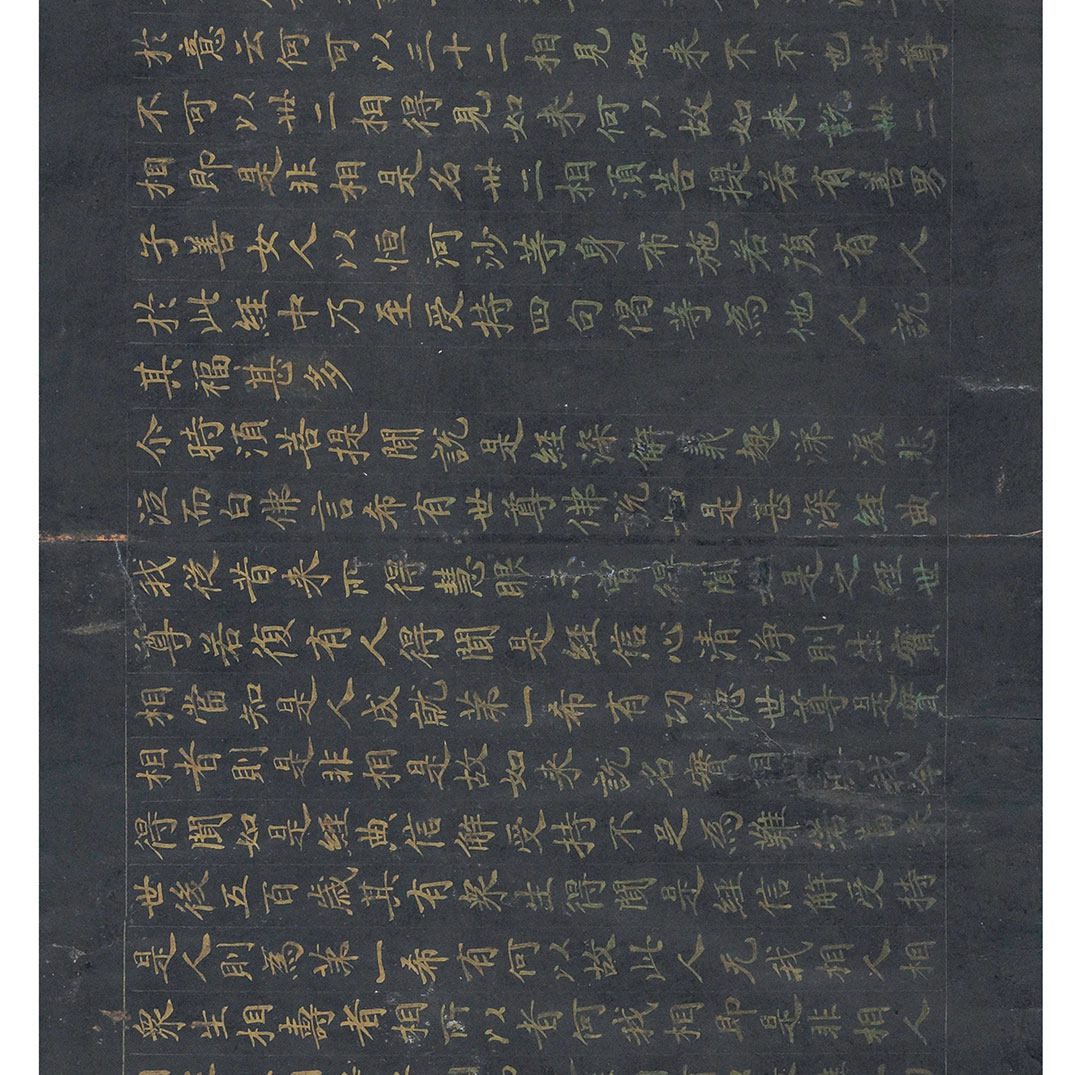 於意云何可以三十二相見如来不不也世尊
不可以卅二相得見如来何以故如来說卅二
相即是非相是名卅二相須菩提若有善男
子善女人以恒河沙等身布施若復有人
於此経中乃至受持四句偈等為他人說
其福甚多
尒時須菩提聞說是経深解義趣涕淚悲
泣而白佛言希有世尊佛說是甚深経典
我從昔来所得慧眼未曾得聞如是之経世
尊若復有人得聞是経信心清浄則生實
相當知是人成就第一希有功徳世尊是實
相者則是非相是故如来說名實相我今
得聞如是經典信解受持不足為難若當来
世後五百歳其有衆生得聞是経信解受持
是人則為第一希有何以故此人无我相人相
衆生相壽者相所以者何我相即是非相人